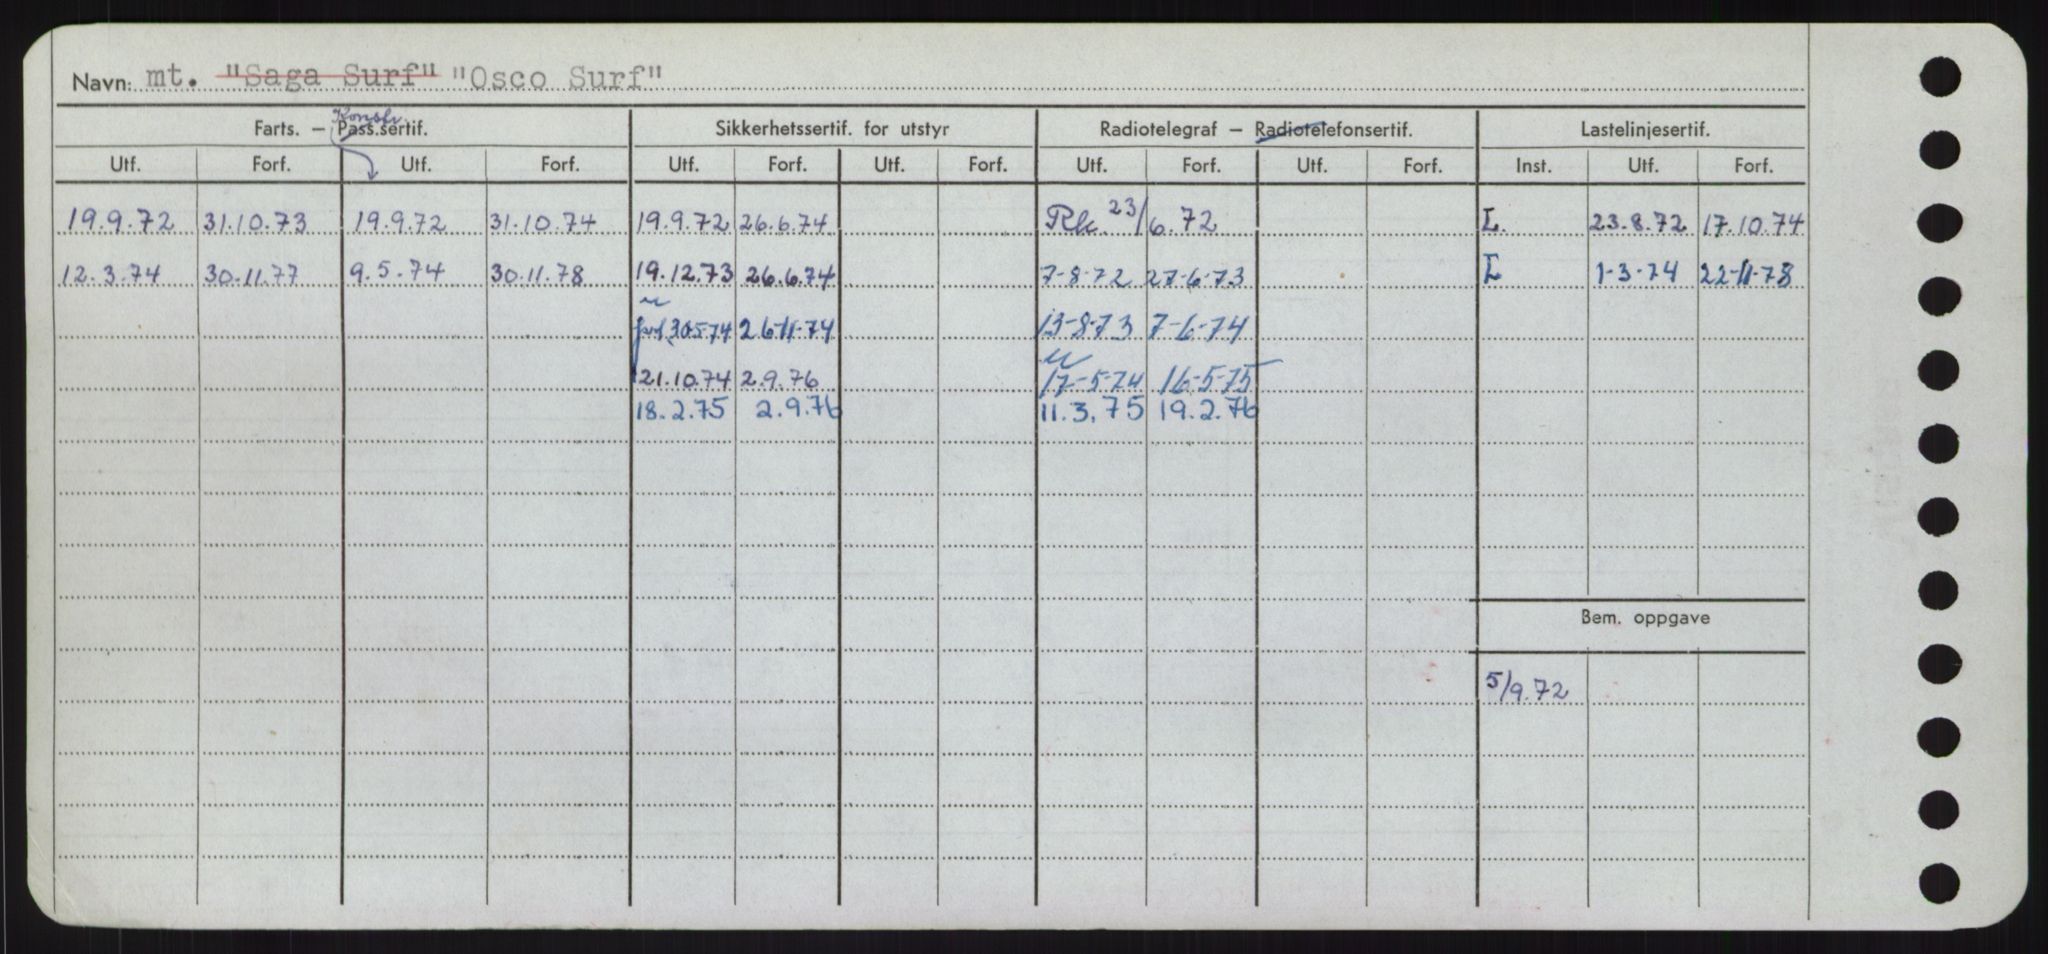 Navn: mt. "Saga Surf" "Osco Surf"
Konstr.
Farts. – Pass.sertif. Sikkerhetssertif. for utstyr Radiotelegraf – Radiotelefonsertif. Lastelinjesertif.
Utf. Forf. Utf. Forf. Utf. Forf. Utf. Forf. Utf. Forf. Utf. Forf. Inst. Utf. Forf.
19.9.72 31.10.73 19.9.72 31.10.74 19.9.72 26.6.74 Rk. 23/6.72 L. 23.8.72 17.10.74
12.3.74 30.11.77 9.5.74 30.11.78 19.12.73 26.6.74 7-8-72 27-6-73 L 1-3-74 22-11-78
30-5-74 26-11-74 13-8-73 7-6-74
21.10.74 2.9.76 17-5-74 16-5-75
18.2.75 2.9.76 11.3.75 19.2.76
Bem. oppgave
5/9.72